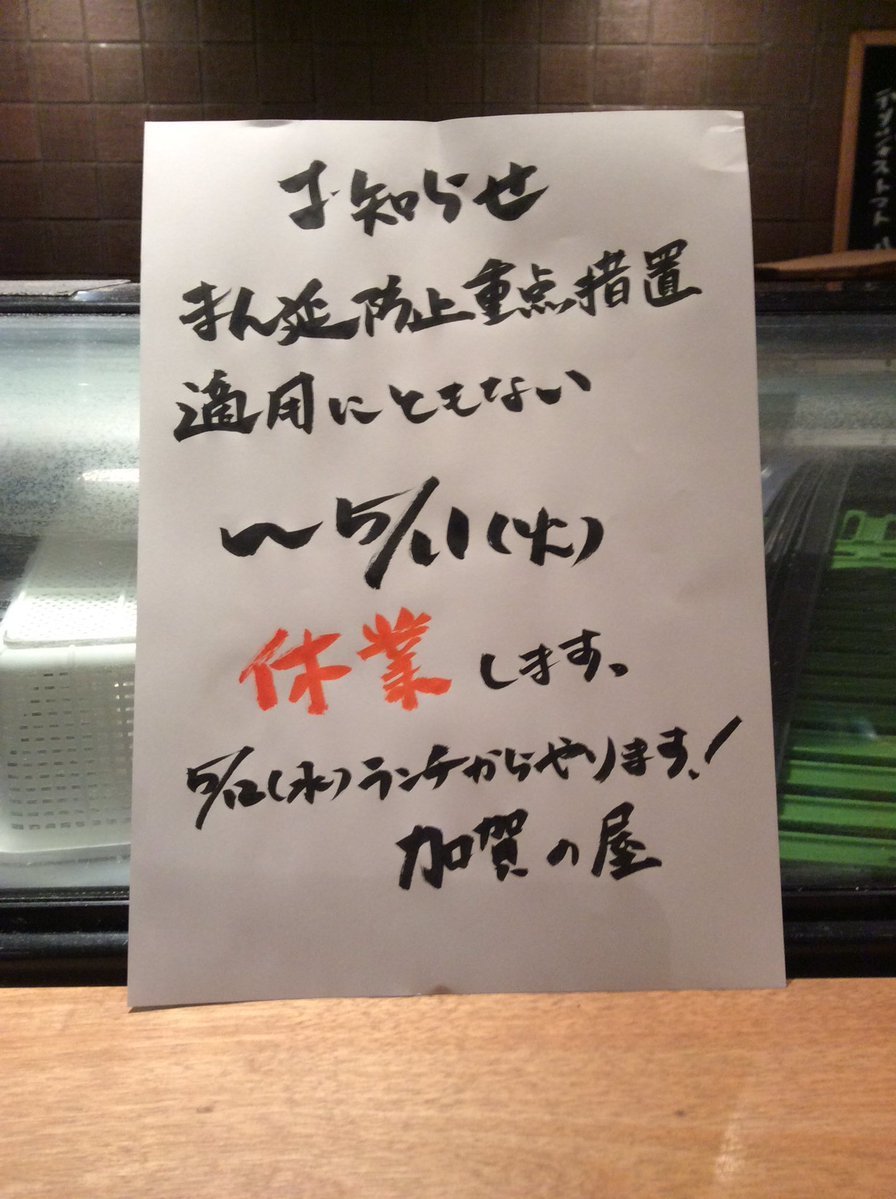 お知らせ
まん延防止重点措置
適用にともない
〜5/11(火)
休業します。
5/12(水)ランチからやります!
加賀の屋